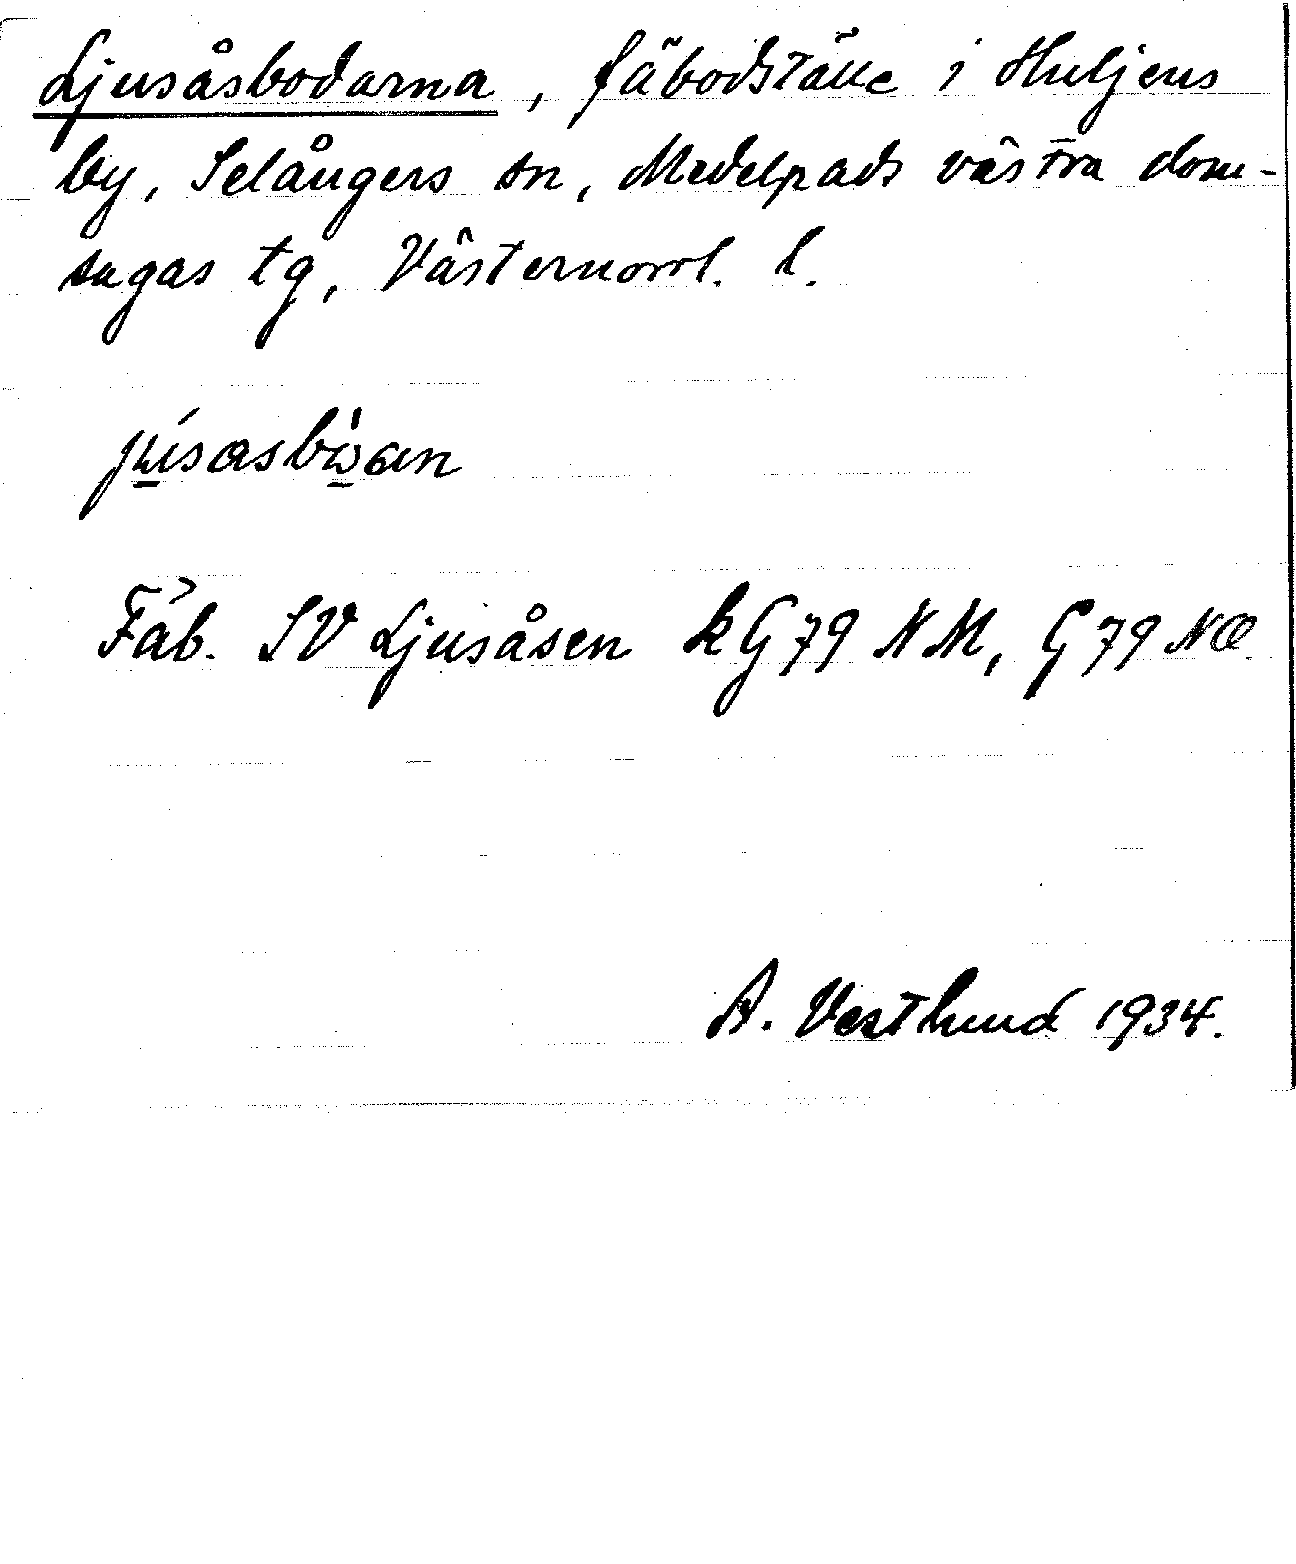 Ljusåsbodarna, fäbodställe i Huljens
by, Selångers sn, Medelpads västra dom-
sagas tg, Västernorrl. l.
Fäb. SV Ljusåsen kG79 NM, G79 NÖ
A. Vestlund 1934.